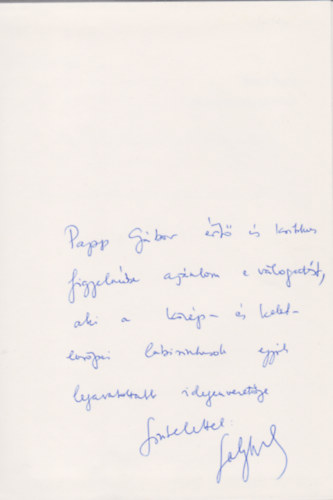 Papp Gábor értő és kritikus
figyelmébe ajánlom e válogatást,
aki a közép- és kelet-
európai labirintusok egyik
legavatottabb idegenvezetője
Tisztelettel: